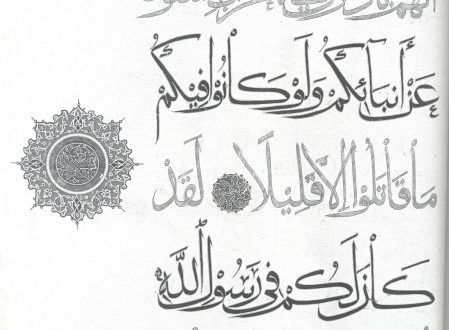 عَنْ أَنبَائِكُمْ وَلَوْ كَانُوا فِيكُمْ
مَا قَاتَلُوا إِلَّا قَلِيلًا لَقَدْ
كَانَ لَكُمْ فِي رَسُولِ اللَّهِ